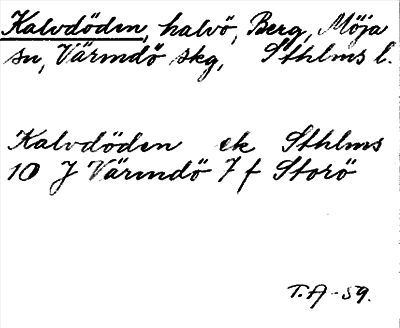 Kalvdöden, halvö, Berg, Möja
sn, Värmdö skg, Sthlms l.
Kalvdöden ek Sthlms
10 J Värmdö 7 f Storö
T.A-59.